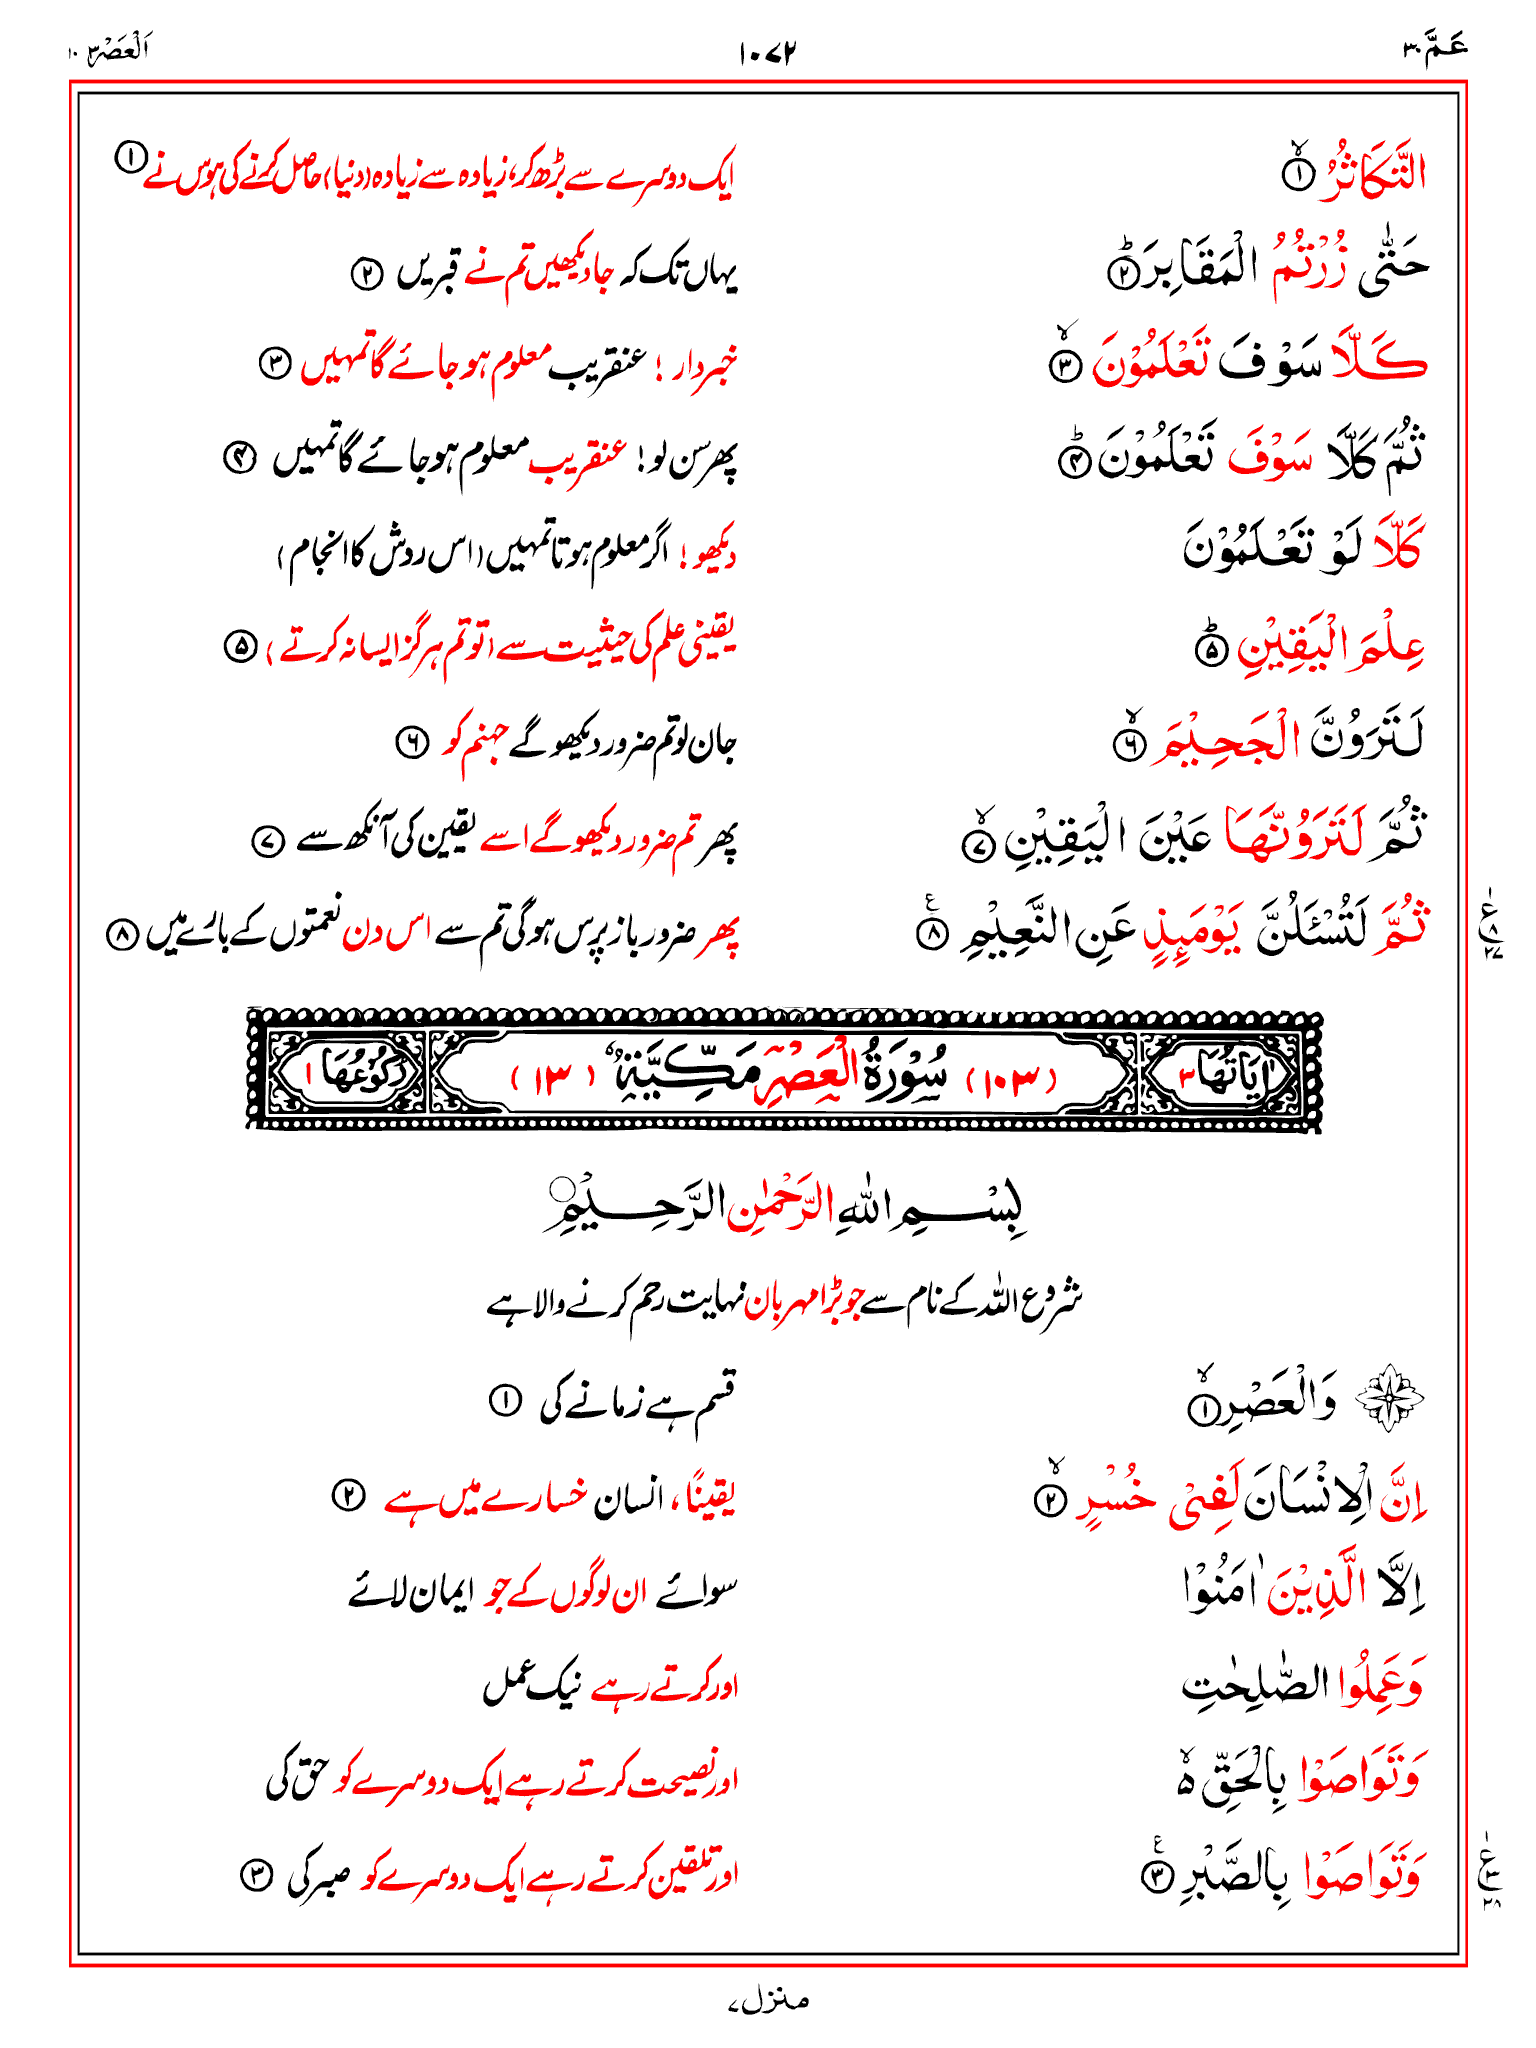 عَمَّ ۳۰ ۱۰۷۲ اَلْعَصْر ۱۰۳
التَّكَاثُرُ ۙ﴿۱﴾ ایک دوسرے سے بڑھ کر، زیادہ سے زیادہ (دنیا) حاصل کرنے کی ہوس نے ﴿۱﴾
حَتّٰى زُرْتُمُ الْمَقَابِرَ ؕ﴿۲﴾ یہاں تک کہ جا دیکھیں تم نے قبریں ﴿۲﴾
كَلَّا سَوْفَ تَعْلَمُوْنَ ۙ﴿۳﴾ خبردار ! عنقریب معلوم ہو جائے گا تمہیں ﴿۳﴾
ثُمَّ كَلَّا سَوْفَ تَعْلَمُوْنَ ؕ﴿۴﴾ پھر سن لو! عنقریب معلوم ہو جائے گا تمہیں ﴿۴﴾
كَلَّا لَوْ تَعْلَمُوْنَ دیکھو ! اگر معلوم ہوتا تمہیں (اس روش کا انجام)
عِلْمَ الْيَقِيْنِ ؕ﴿۵﴾ یقینی علم کی حیثیت سے (تو تم ہرگز ایسا نہ کرتے) ﴿۵﴾
لَتَرَوُنَّ الْجَحِيْمَ ۙ﴿۶﴾ جان لو تم ضرور دیکھو گے جہنم کو ﴿۶﴾
ثُمَّ لَتَرَوُنَّهَا عَيْنَ الْيَقِيْنِ ۙ﴿۷﴾ پھر تم ضرور دیکھو گے اسے یقین کی آنکھ سے ﴿۷﴾
ثُمَّ لَتُسْـَٔلُنَّ يَوْمَىِٕذٍ عَنِ النَّعِيْمِ ﴿۸﴾ پھر ضرور باز پرس ہوگی تم سے اس دن نعمتوں کے بارے میں ﴿۸﴾
ع ۸ ۲۷
اٰيَاتُهَا ۳ (۱۰۳) سُوْرَةُ الْعَصْرِ مَكِّيَّةٌ (۱۳) رُكُوْعُهَا ۱
بِسْمِ اللّٰهِ الرَّحْمٰنِ الرَّحِيْمِ
شروع اللہ کے نام سے جو بڑا مہربان نہایت رحم کرنے والا ہے
وَالْعَصْرِ ۙ﴿۱﴾ قسم ہے زمانے کی ﴿۱﴾
اِنَّ الْاِنْسَانَ لَفِىْ خُسْرٍ ۙ﴿۲﴾ یقینًا، انسان خسارے میں ہے ﴿۲﴾
اِلَّا الَّذِيْنَ اٰمَنُوْا سوائے ان لوگوں کے جو ایمان لائے
وَعَمِلُوا الصّٰلِحٰتِ اور کرتے رہے نیک عمل
وَتَوَاصَوْا بِالْحَقِّ ۙ۬ اور نصیحت کرتے رہے ایک دوسرے کو حق کی
وَتَوَاصَوْا بِالصَّبْرِ ﴿۳﴾ اور تلقین کرتے رہے ایک دوسرے کو صبر کی ﴿۳﴾
ع ۳ ۲۸
منزل ۷